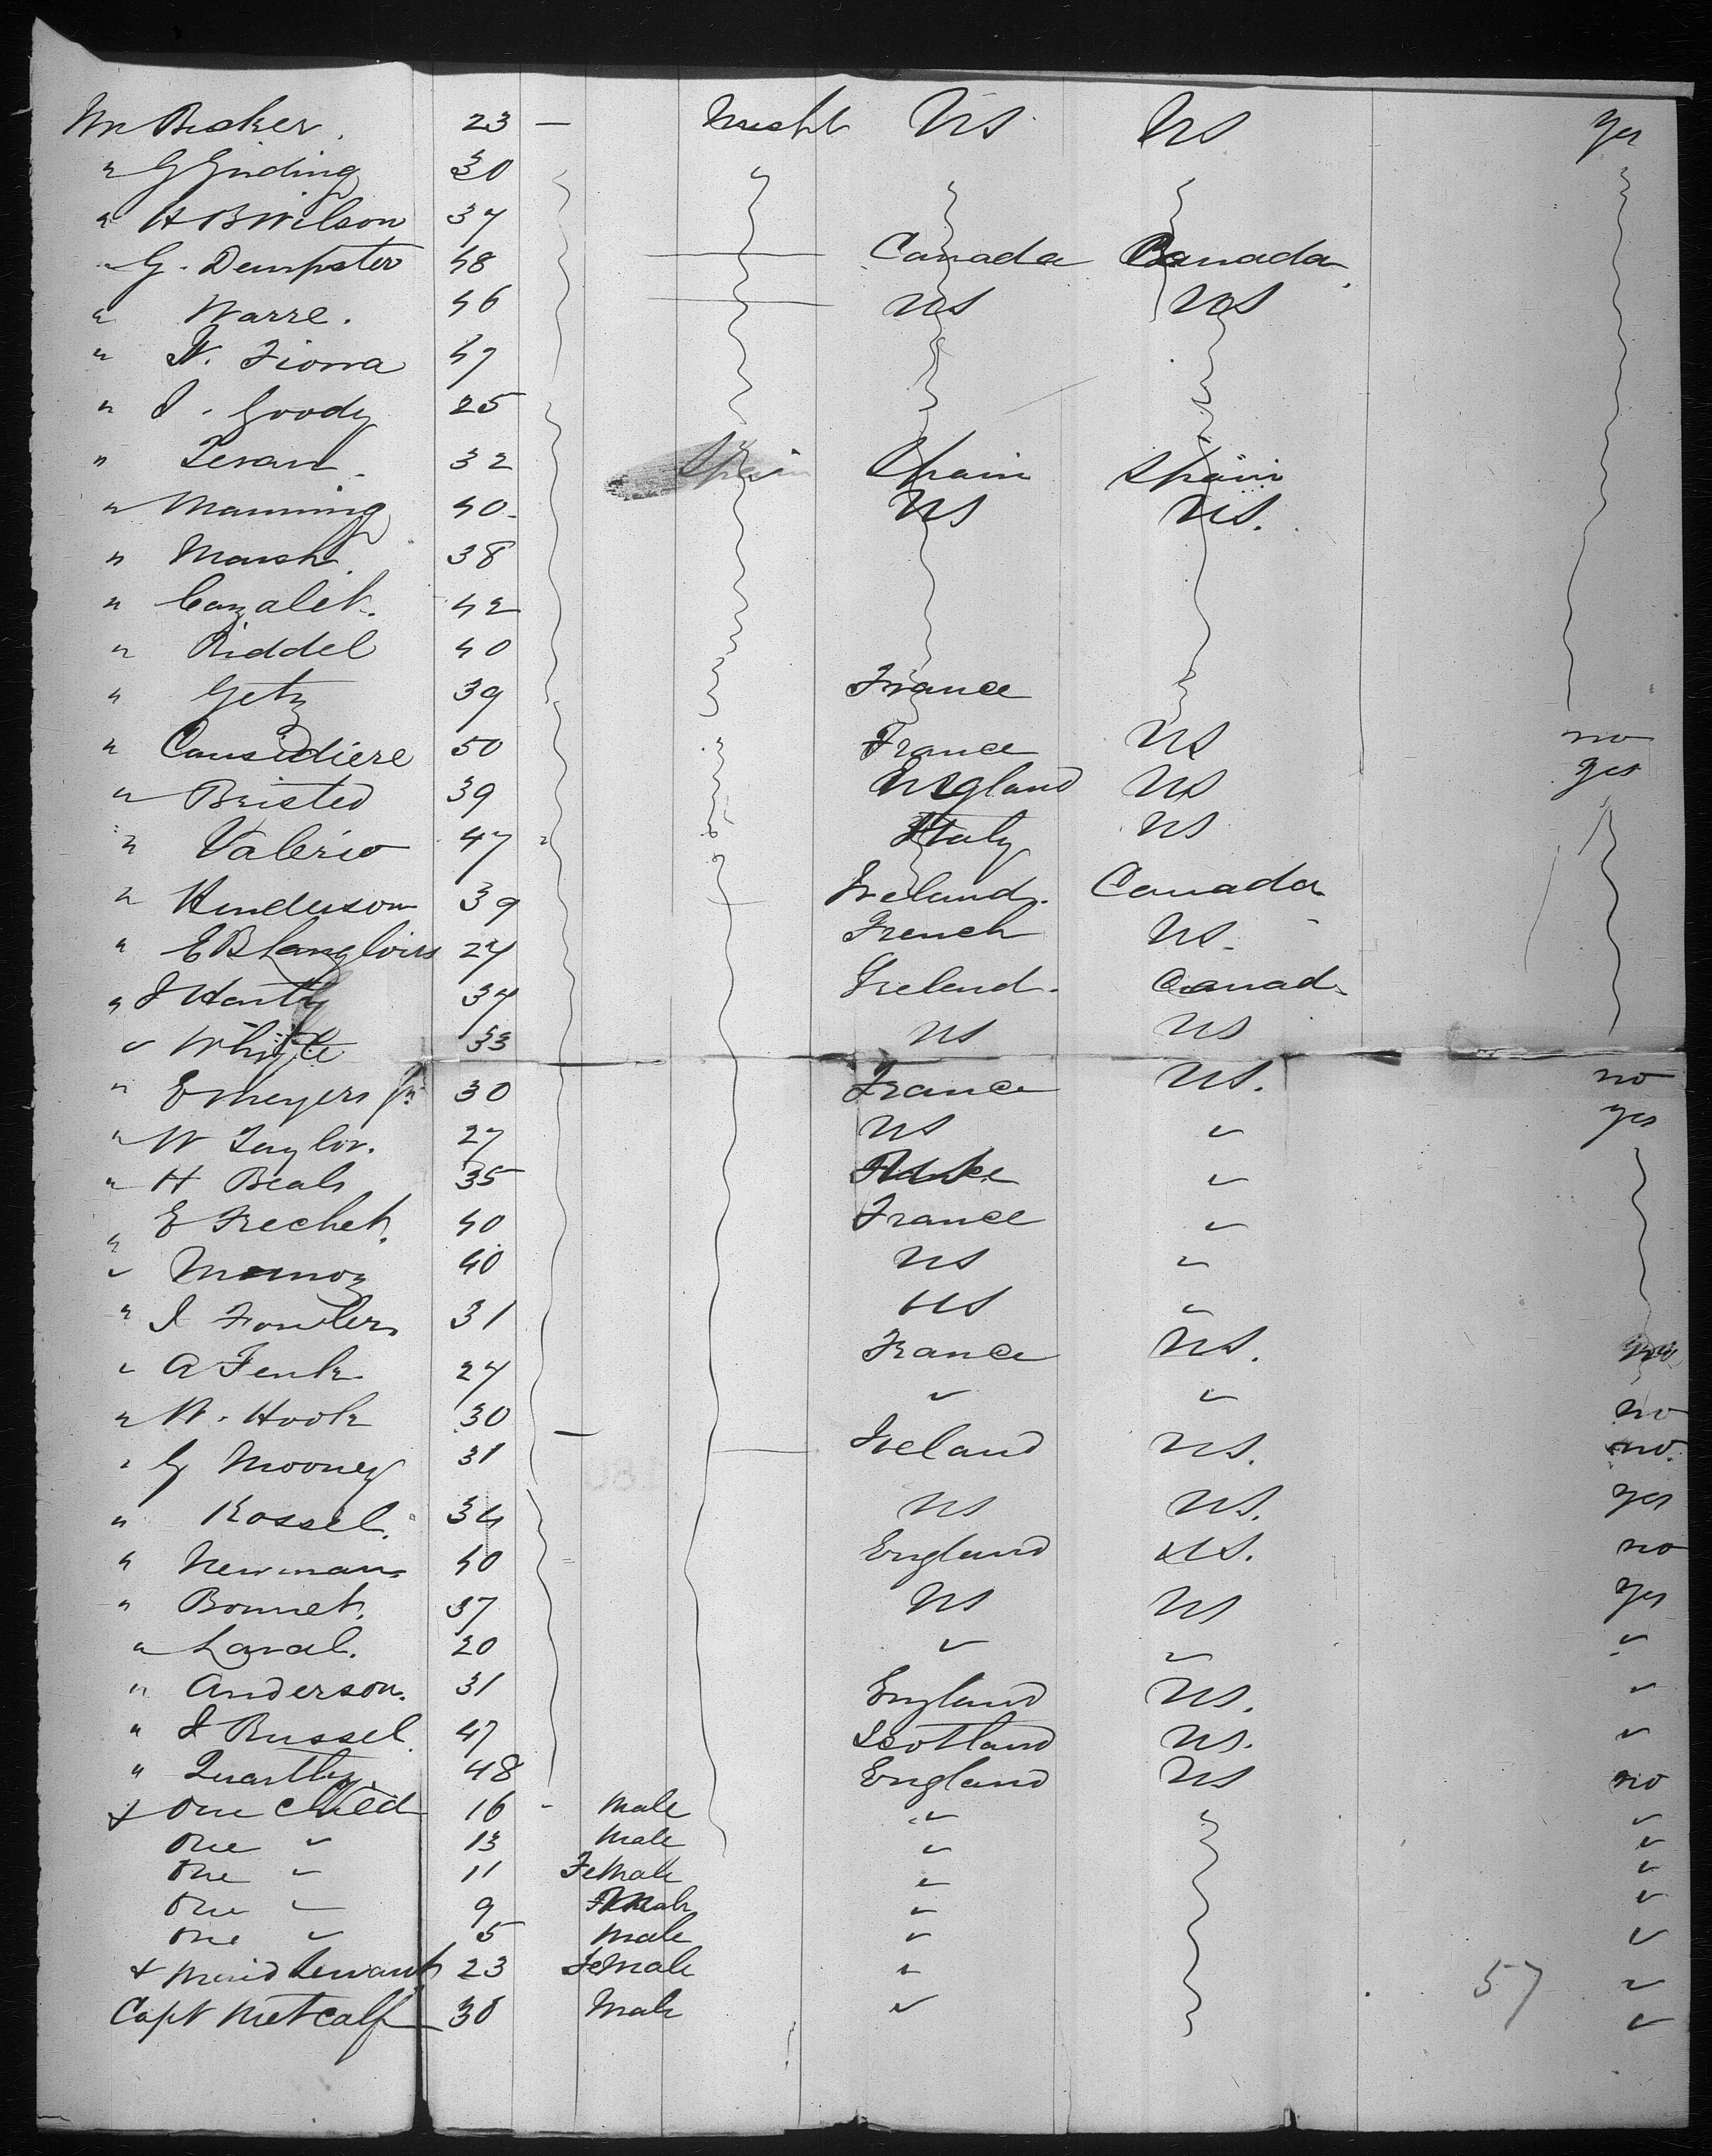 Mr Becker. 23 — Mecht US US yes
" G Giding 30
" H B Wilson 37
" G. Dempster 48 Canada Canada
" Warre. 46 US US
" N. Fiorra 47
" J. Goody 25
" Teran 32 Spain Spain Spain
" Manning 40 US US.
" Marsh. 38
" Cazalet. 42
" Riddel 40
" Getz 39 France
" Causidiere 50 France US no
" Bristed 39 England US yes
" Valerio 47 " Italy US
" Henderson 39 Ireland. Canada
" E B Langlois 27 French US
" J Hanty 37 Ireland. Canad
" Whyte 33 US US
" E Meyers Jr 30 France US. no
" W Taylor. 27 US " yes
" H Beals 35 "
" E Frechet. 40 France "
" 40 US "
" J Fowlers 31 US "
" A Fenk 27 France US.
" W. Hook 30 " " no
" G Mooney 31 Ireland US. no.
" Rossel. 34 US US. yes
" Newman 40 England US. no
" Bonnet. 37 US US yes
" Laval. 20 " " "
" Anderson. 31 England US. "
" J Russel. 47 Scotland US. "
" Quartly 48 England US no
& one child 16 " male " "
one " 13 male " "
one " 11 Female " "
one " 9 Female " "
one " 5 male " "
& maid servant 23 Female " 57 "
Capt Metcalf 30 Male " "